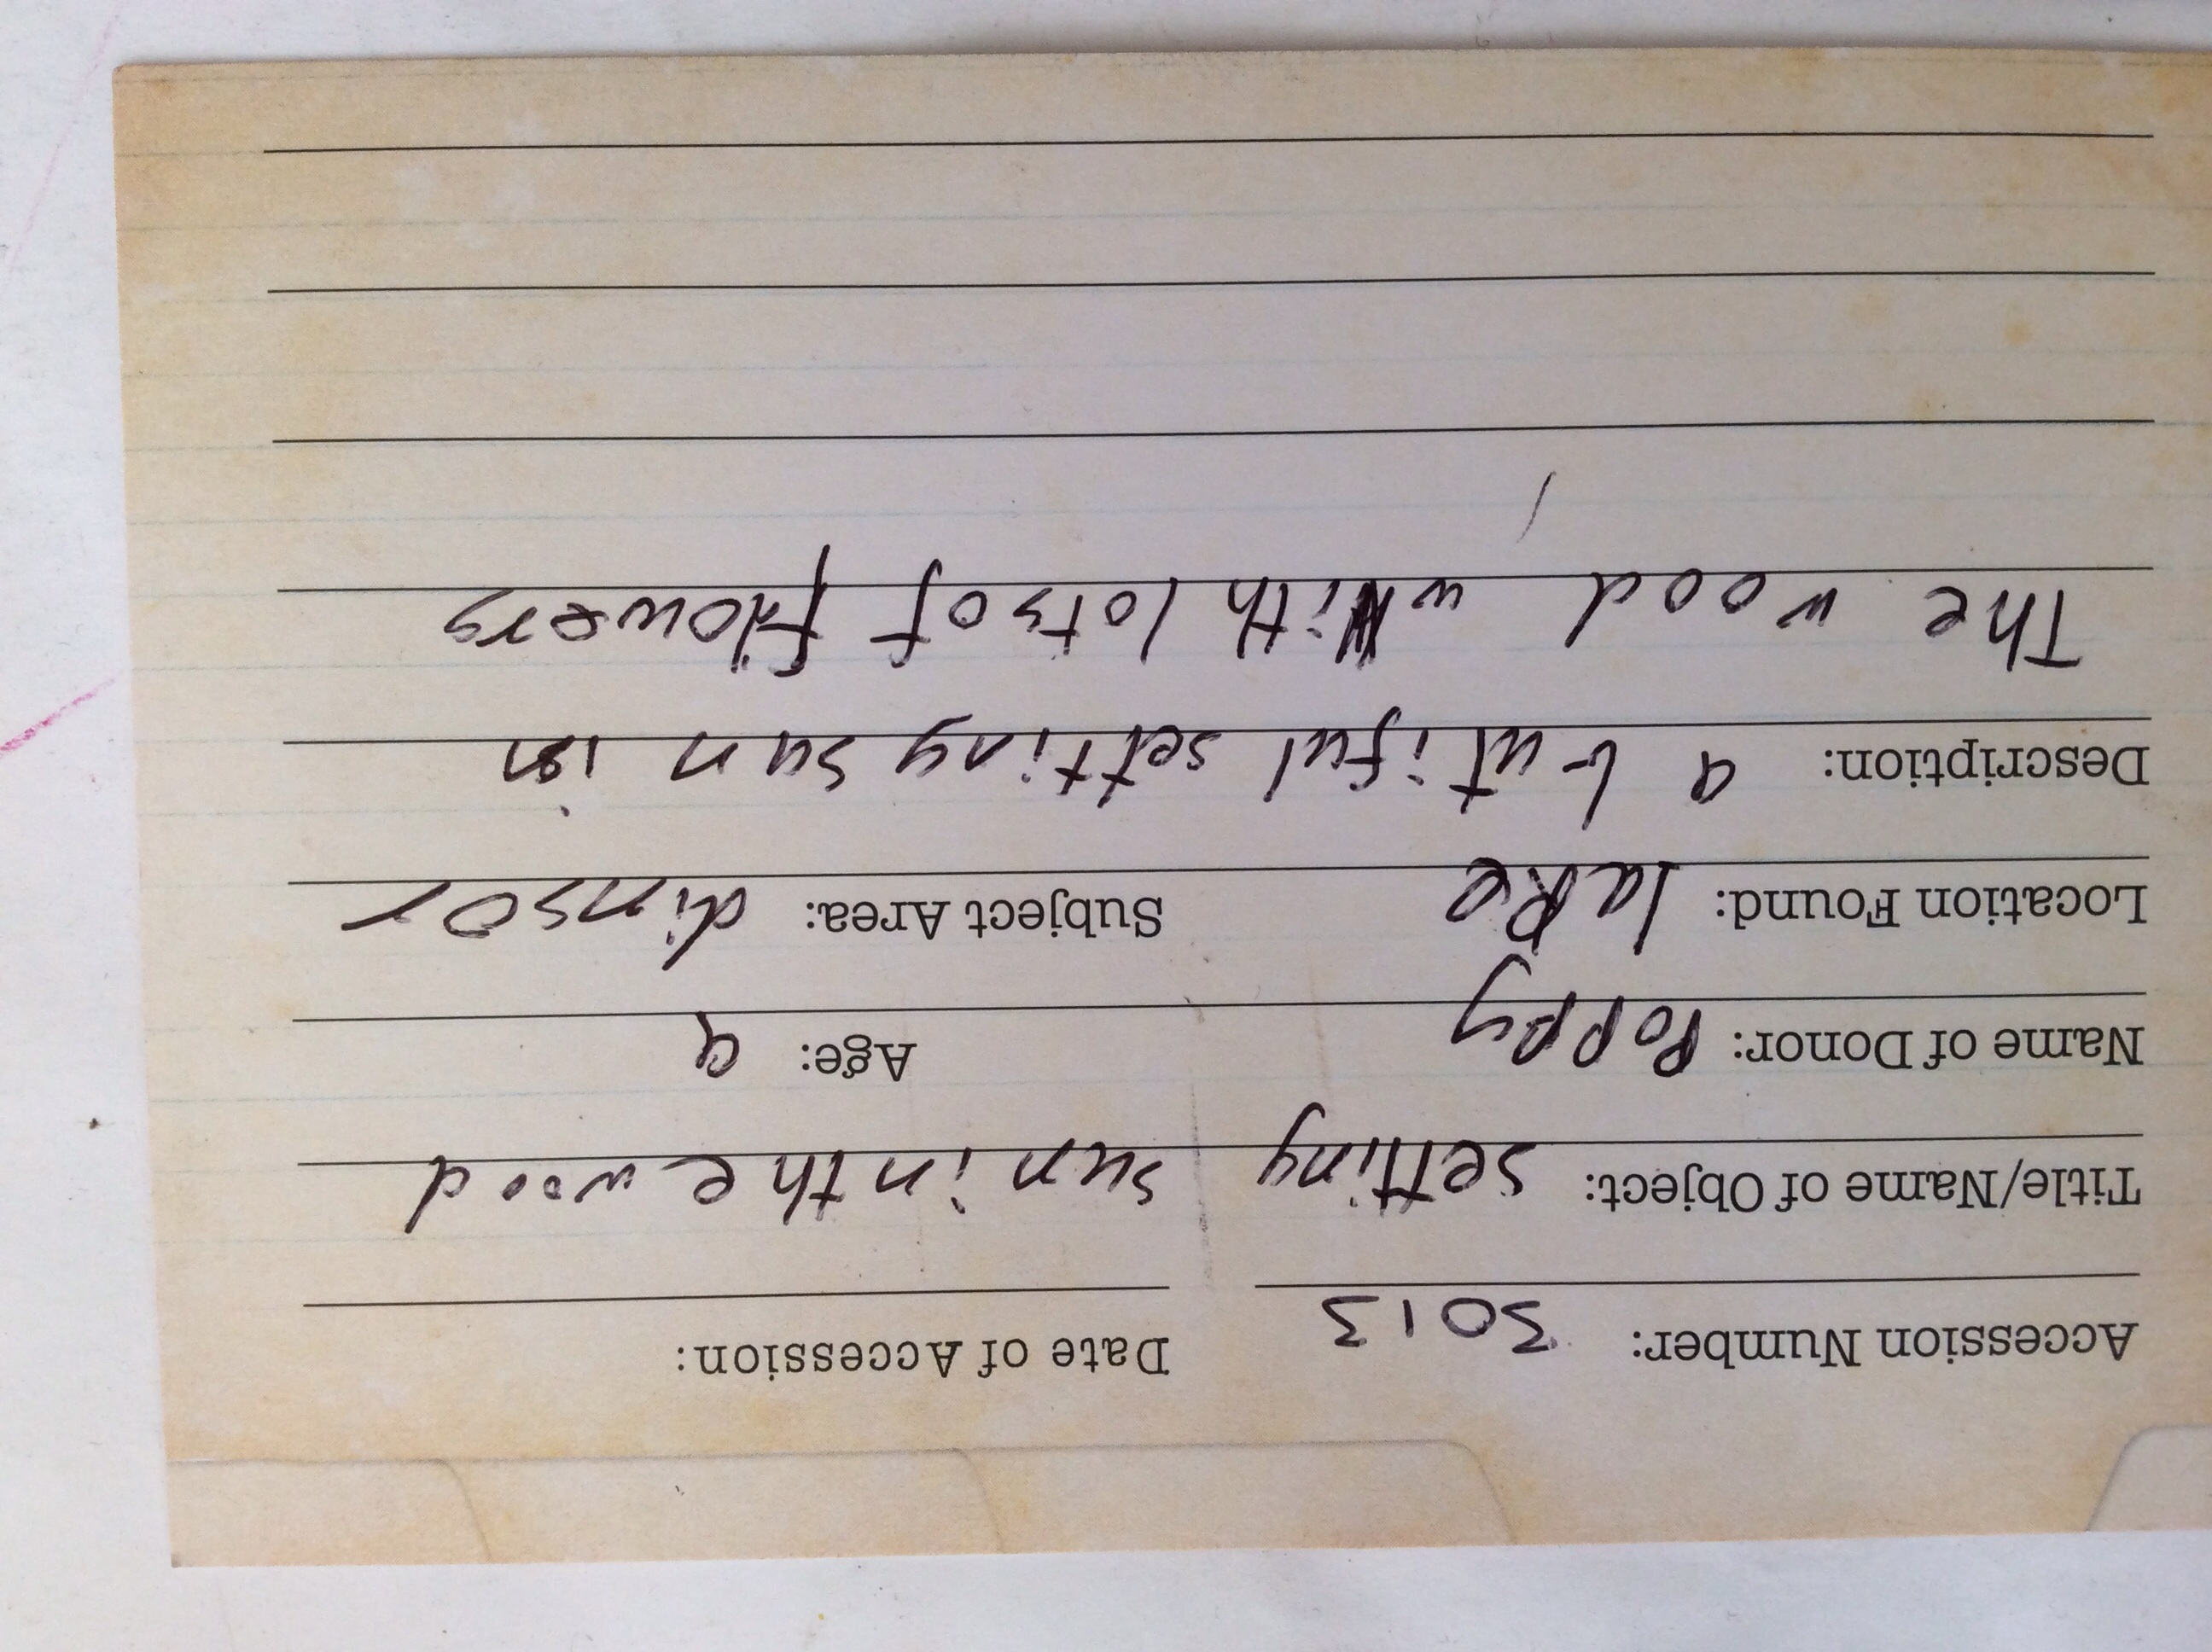 Accession Number: 3013 Date of Accession:
Title/Name of Object: setting sun in the wood
Name of Donor: Poppy Age: 9
Location Found: laRe Subject Area: dinsor
Description: a butiful setting sun in
The wood with lots of flowers